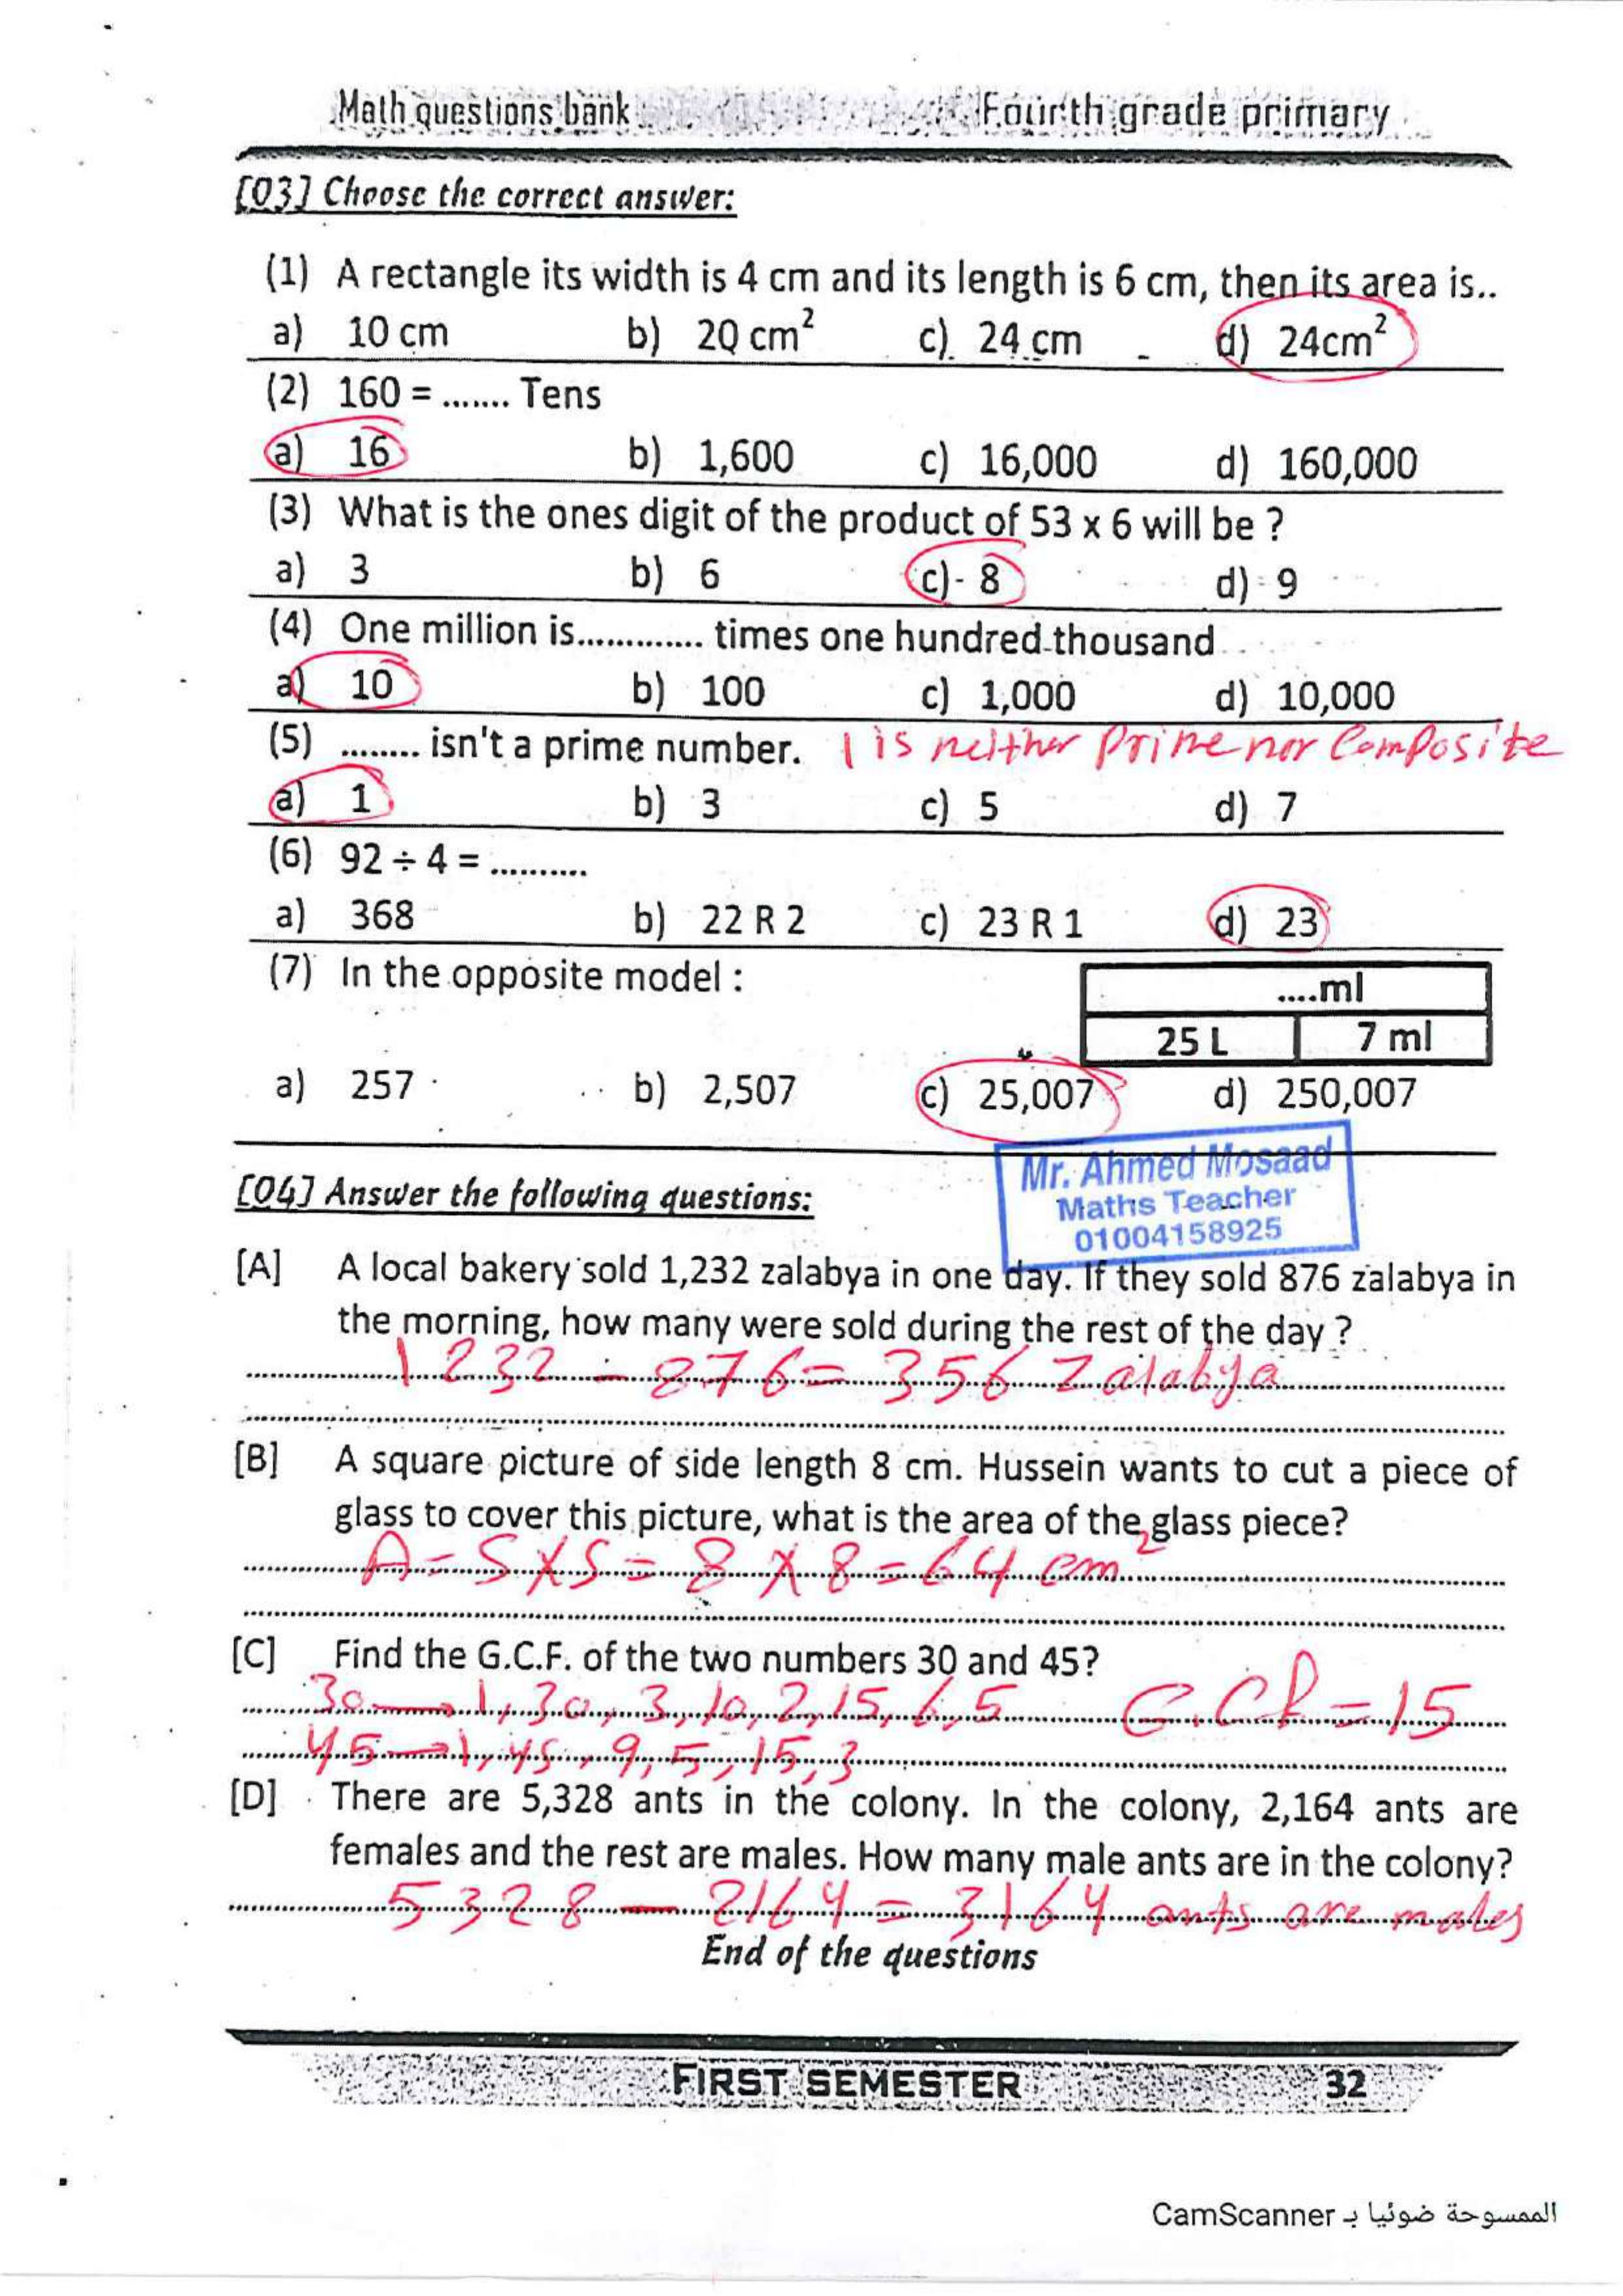 Math questions bank Fourth grade primary
[Q3] Choose the correct answer:
(1) A rectangle its width is 4 cm and its length is 6 cm, then its area is..
a) 10 cm b) 20 cm² c) 24 cm d) 24cm²
(2) 160 = ....... Tens
a) 16 b) 1,600 c) 16,000 d) 160,000
(3) What is the ones digit of the product of 53 x 6 will be ?
a) 3 b) 6 c) 8 d) 9
(4) One million is............. times one hundred thousand
a) 10 b) 100 c) 1,000 d) 10,000
(5) ........ isn't a prime number. 1 is neither Prime nor Composite
a) 1 b) 3 c) 5 d) 7
(6) 92 ÷ 4 = ..........
a) 368 b) 22 R 2 c) 23 R 1 d) 23
(7) In the opposite model :
.....ml
25 L 7 ml
a) 257 b) 2,507 c) 25,007 d) 250,007
Mr. Ahmed Mosaad
Maths Teacher
01004158925
[Q4] Answer the following questions:
[A] A local bakery sold 1,232 zalabya in one day. If they sold 876 zalabya in
the morning, how many were sold during the rest of the day ?
1232 - 876 = 356 Zalabya
[B] A square picture of side length 8 cm. Hussein wants to cut a piece of
glass to cover this picture, what is the area of the glass piece?
A = S X S = 8 X 8 = 64 cm²
[C] Find the G.C.F. of the two numbers 30 and 45?
30 → 1, 30, 3, 10, 2, 15, 6, 5 G.C.F = 15
45 → 1, 45, 9, 5, 15, 3
[D] There are 5,328 ants in the colony. In the colony, 2,164 ants are
females and the rest are males. How many male ants are in the colony?
5328 - 2164 = 3164 ants are males
End of the questions
FIRST SEMESTER 32
الممسوحة ضوئيا بـ CamScanner